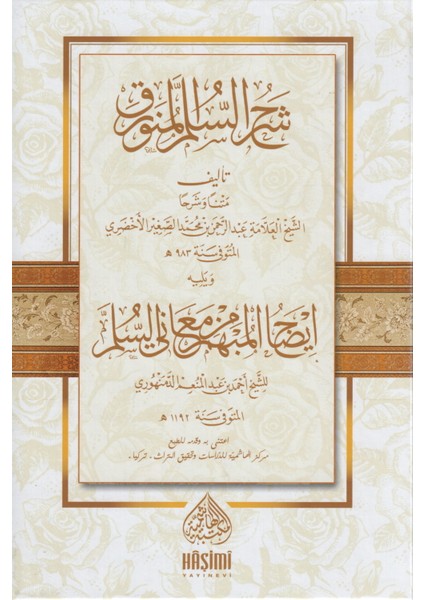 شرح السلم المنورق
تأليف
متنا وشرحا
الشيخ العلامة عبد الرحمن بن محمد الصغير الأخضري
المتوفى سنة ٩٨٣ هـ
ويليه
إيضاح المبهم من معاني السلم
للشيخ أحمد بن عبد المنعم الدمنهوري
المتوفى سنة ١١٩٢ هـ
اعتنى به وقدمه للطبع
مركز الهاشمية للدراسات وتحقيق التراث - تركيا.
المكتبة الهاشمية
HÂŞİMİ
YAYINEVİ